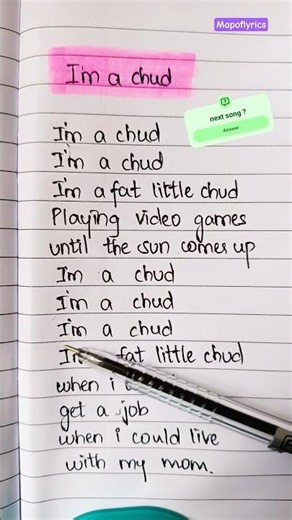 Mapoflyrics
Im a chud
next song ?
Answer
I'm a chud
I'm a chud
I'm a fat little chud
Playing video games
until the sun comes up
I'm a chud
I'm a chud
I'm a chud
fat little chud
when i
get a job
when i could live
with my mom.